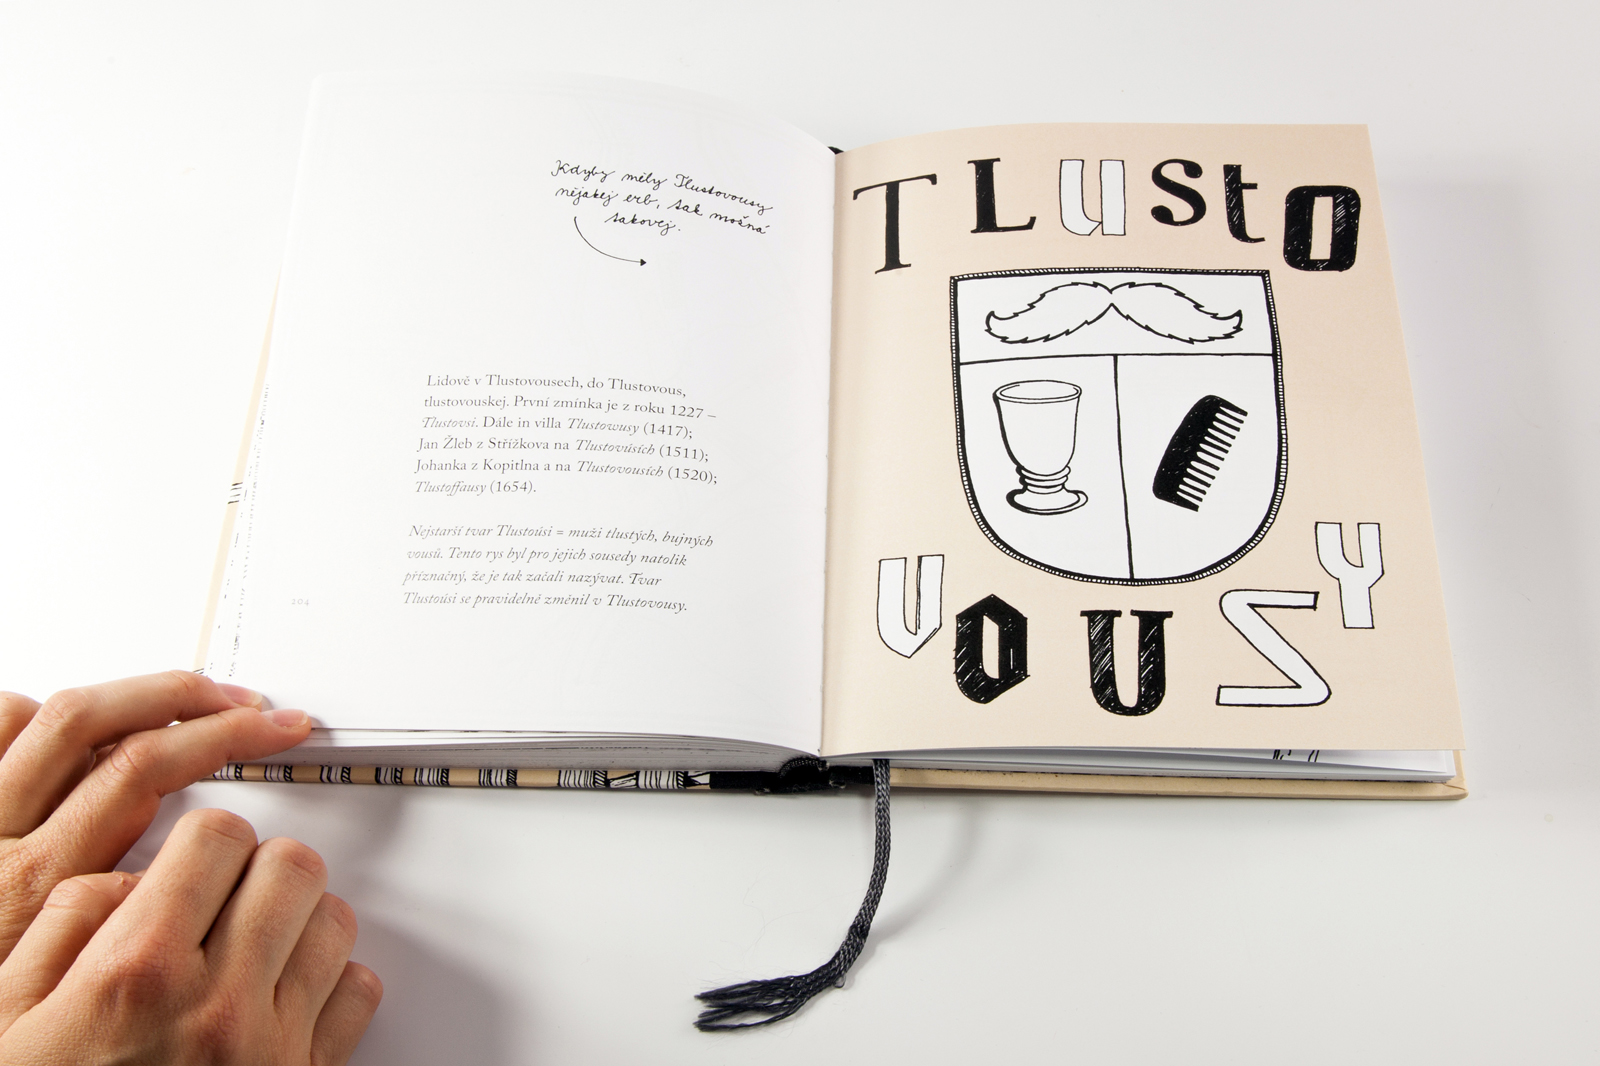 Kdyby měly Tlustovousy
nějakej erb, tak možná
takovej.
Lidově v Tlustovousech, do Tlustovous,
tlustovouskej. První zmínka je z roku 1227 –
Tlustovsi. Dále in villa Tlustowusy (1417);
Jan Žleb z Střížkova na Tlustovúsích (1511);
Johanka z Kopitlna a na Tlustovousích (1520);
Tlustoffausy (1654).
Nejstarší tvar Tlustoúsi = muži tlustých, bujných
vousů. Tento rys byl pro jejich sousedy natolik
příznačný, že je tak začali nazývat. Tvar
Tlustoúsi se pravidelně změnil v Tlustovousy.
204
TLUSTO
VOUSY